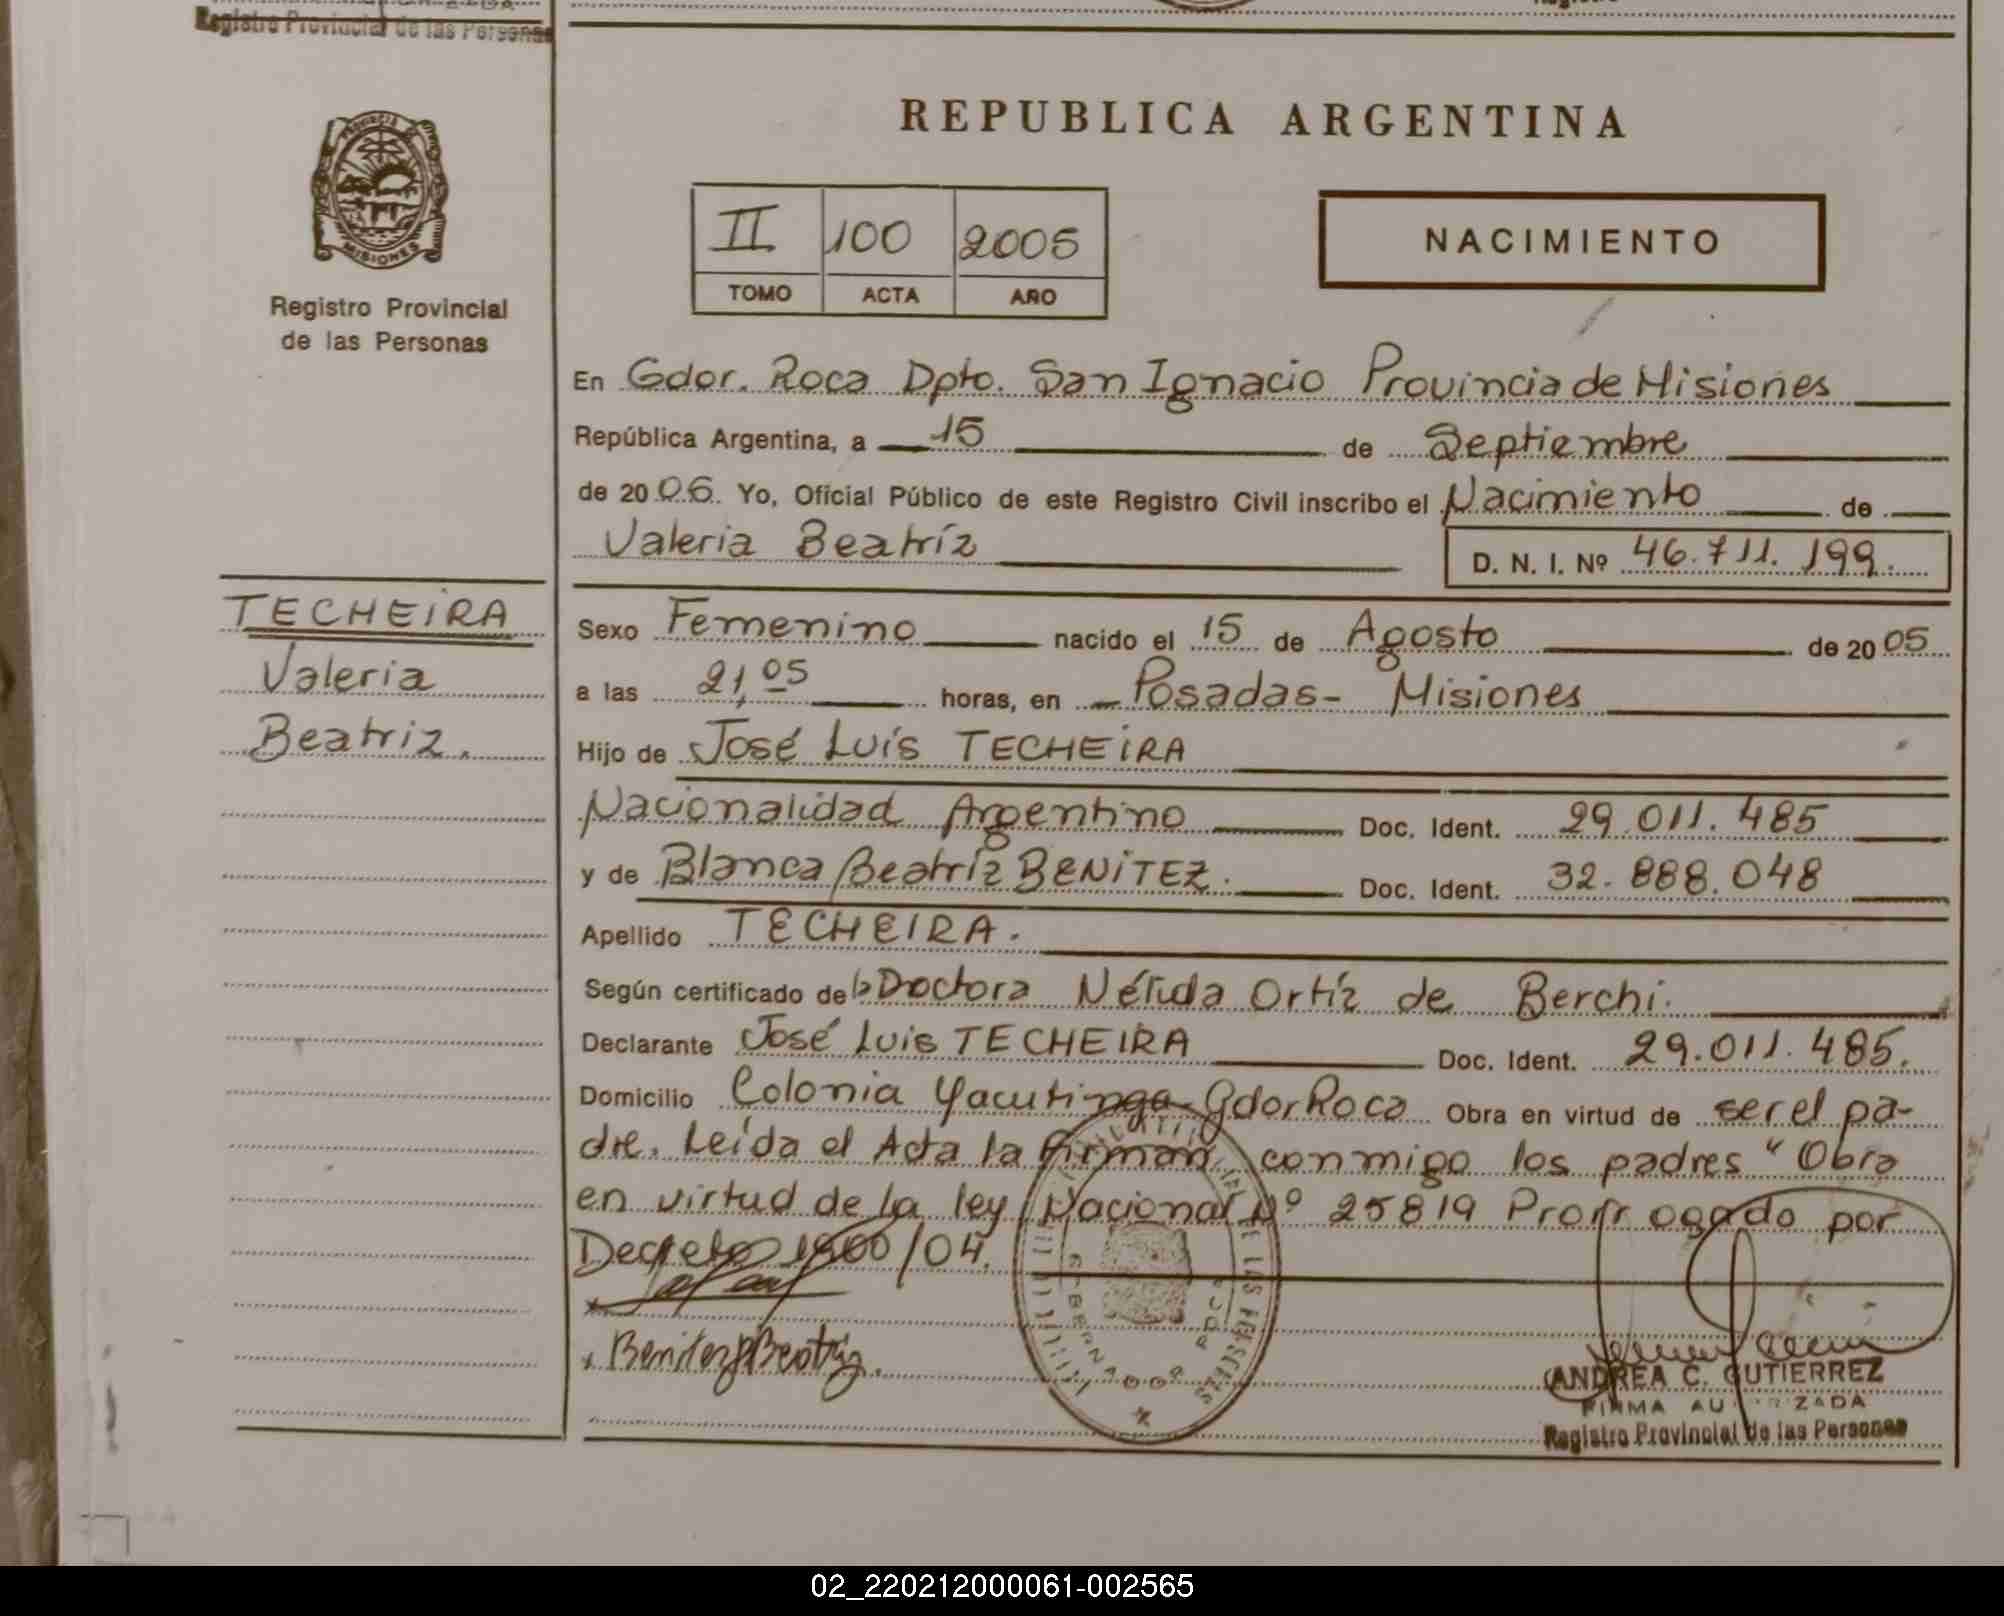 Registro Provincial de las Personas
REPUBLICA ARGENTINA
PROVINCIA DE
MISIONES
Registro Provincial
de las Personas
II 100 2005
TOMO ACTA AÑO
NACIMIENTO
En Gdor. Roca Dpto. San Ignacio Provincia de Misiones
República Argentina, a 15 de Septiembre
de 2006. Yo, Oficial Público de este Registro Civil inscribo el Nacimiento de
Valeria Beatríz
D. N. I. Nº 46.711.199.
TECHEIRA
Valeria
Beatriz.
Sexo Femenino nacido el 15 de Agosto de 2005
a las 21,05 horas, en - Posadas - Misiones
Hijo de José Luís TECHEIRA
Nacionalidad Argentino Doc. Ident. 29.011.485
y de Blanca Beatríz BENITEZ. Doc. Ident. 32.888.048
Apellido TECHEIRA.
Según certificado de la Doctora Nélida Ortíz de Berchi.
Declarante José Luis TECHEIRA Doc. Ident. 29.011.485.
Domicilio Colonia Yacutinga-Gdor Roca Obra en virtud de ser el pa-
dre. Leída el Acta la firman conmigo los padres "Obra
en virtud de la ley Nacional Nº 25819 Prorrogado por
Decreto 1900/04.
Benitez Beatriz.
GOBERNADOR ROCA
DE LAS PERSONAS
ANDREA C. GUTIERREZ
FIRMA AUTORIZADA
Registro Provincial de las Personas
02_220212000061-002565